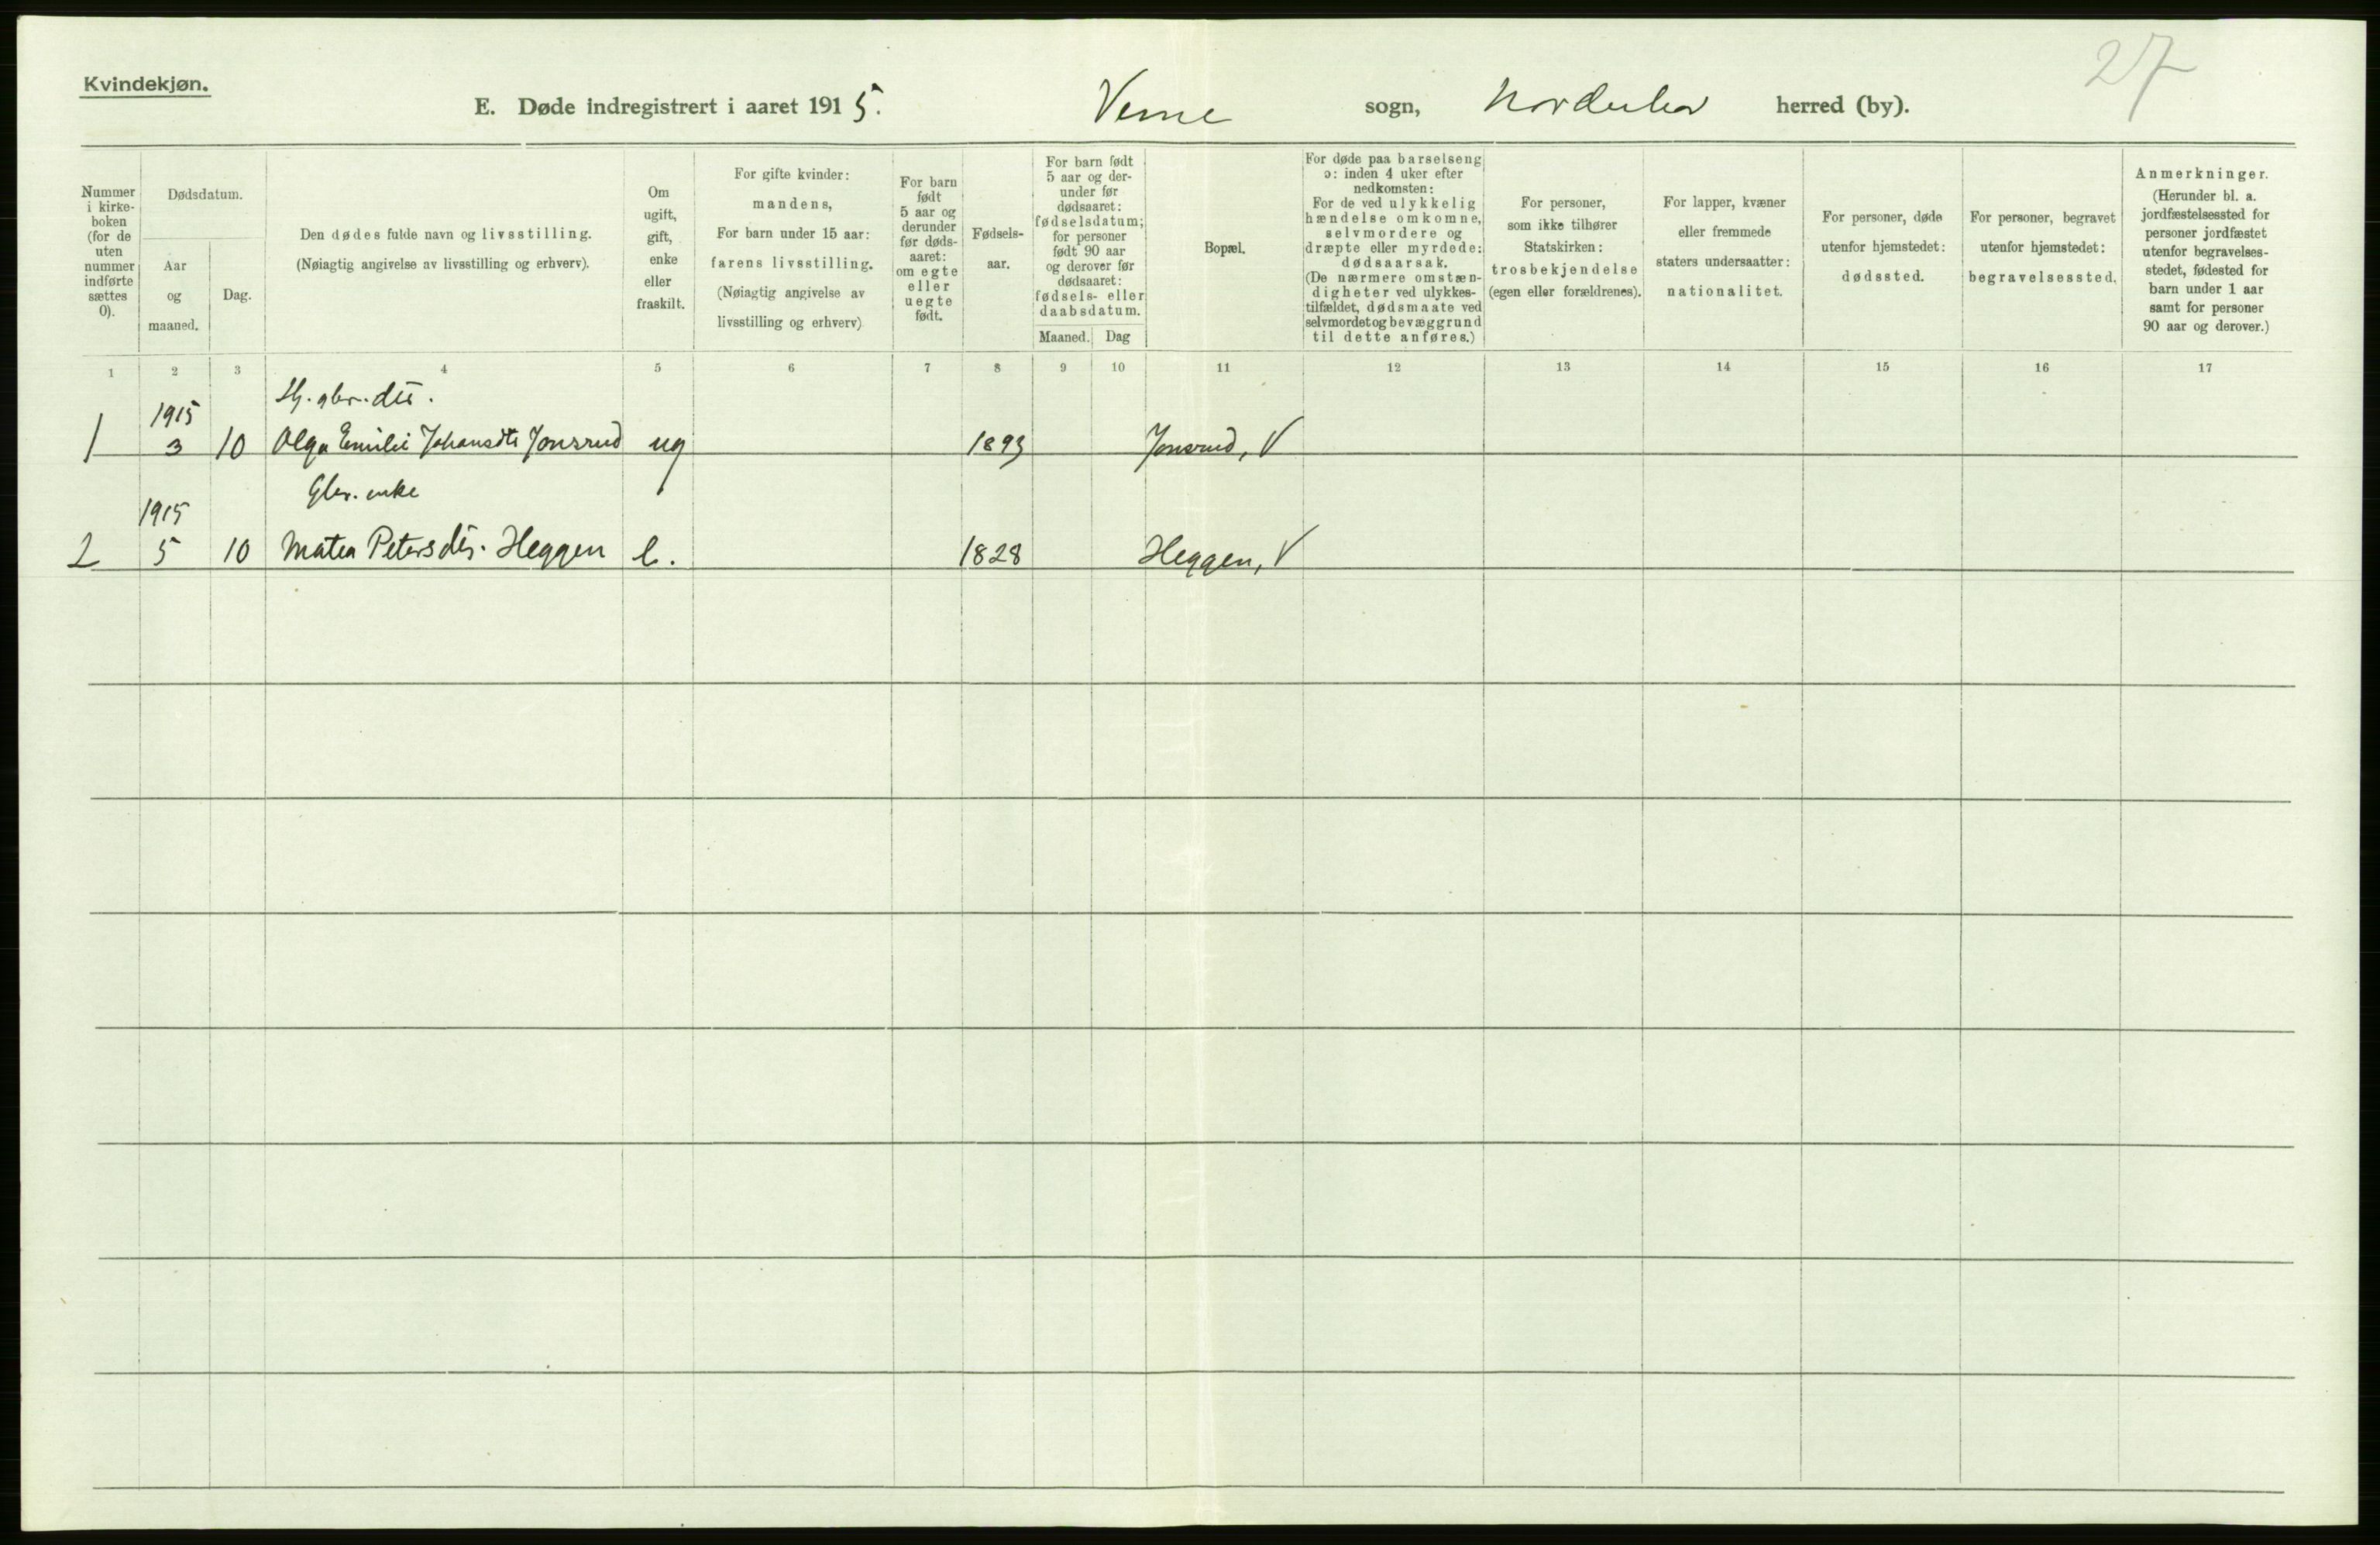 Kvindekjøn.
27
E. Døde indregistrert i aaret 1915. Verne sogn, Norderhov herred (by).
Nummer i kirke-
boken
(for de
uten
nummer
indførte
sættes
0).
Dødsdatum.
Aar
og
maaned.
Dag.
Den dødes fulde navn og livsstilling.
(Nøiagtig angivelse av livsstilling og erhverv).
Om
ugift,
gift,
enke
eller
fraskilt.
For gifte kvinder:
mandens,
For barn under 15 aar:
farens livsstilling.
(Nøiagtig angivelse av
livsstilling og erhverv)
For barn
født
5 aar og
derunder
før døds-
aaret:
om egte
eller
uegte
født.
Fødsels-
aar.
For barn født
5 aar og der-
under før
dødsaaret:
fødselsdatum;
for personer
født 90 aar
og derover før
dødsaaret:
fødsels- eller
daabsdatum.
Maaned. Dag
Bopæl.
For døde paa barselseng
ɔ: inden 4 uker efter
nedkomsten:
For de ved ulykkelig
hændelse omkomne,
selvmordere og
dræpte eller myrdede:
dødsaarsak.
(De nærmere omstæn-
digheter ved ulykkes-
tilfældet, dødsmaate ved
selvmordet og bevæggrund
til dette anføres.)
For personer,
som ikke tilhører
Statskirken:
trosbekjendelse
(egen eller forældrenes).
For lapper, kvæner
eller fremmede
staters undersaatter:
nationalitet.
For personer, døde
utenfor hjemstedet:
dødssted.
For personer, begravet
utenfor hjemstedet:
begravelsessted.
Anmerkninger.
(Herunder bl. a.
jordfæstelsessted for
personer jordfæstet
utenfor begravelses-
stedet, fødested for
barn under 1 aar
samt for personer
90 aar og derover.)
1 2 3 4 5 6 7 8 9 10 11 12 13 14 15 16 17
1915
1 3 10 Olga Emilie Johansdtr Jonsrud ug 1893 Jonsrud, V
Gbr. enke
1915
2 5 10 Matea Petersdtr. Heggen e. 1828 Heggen, V